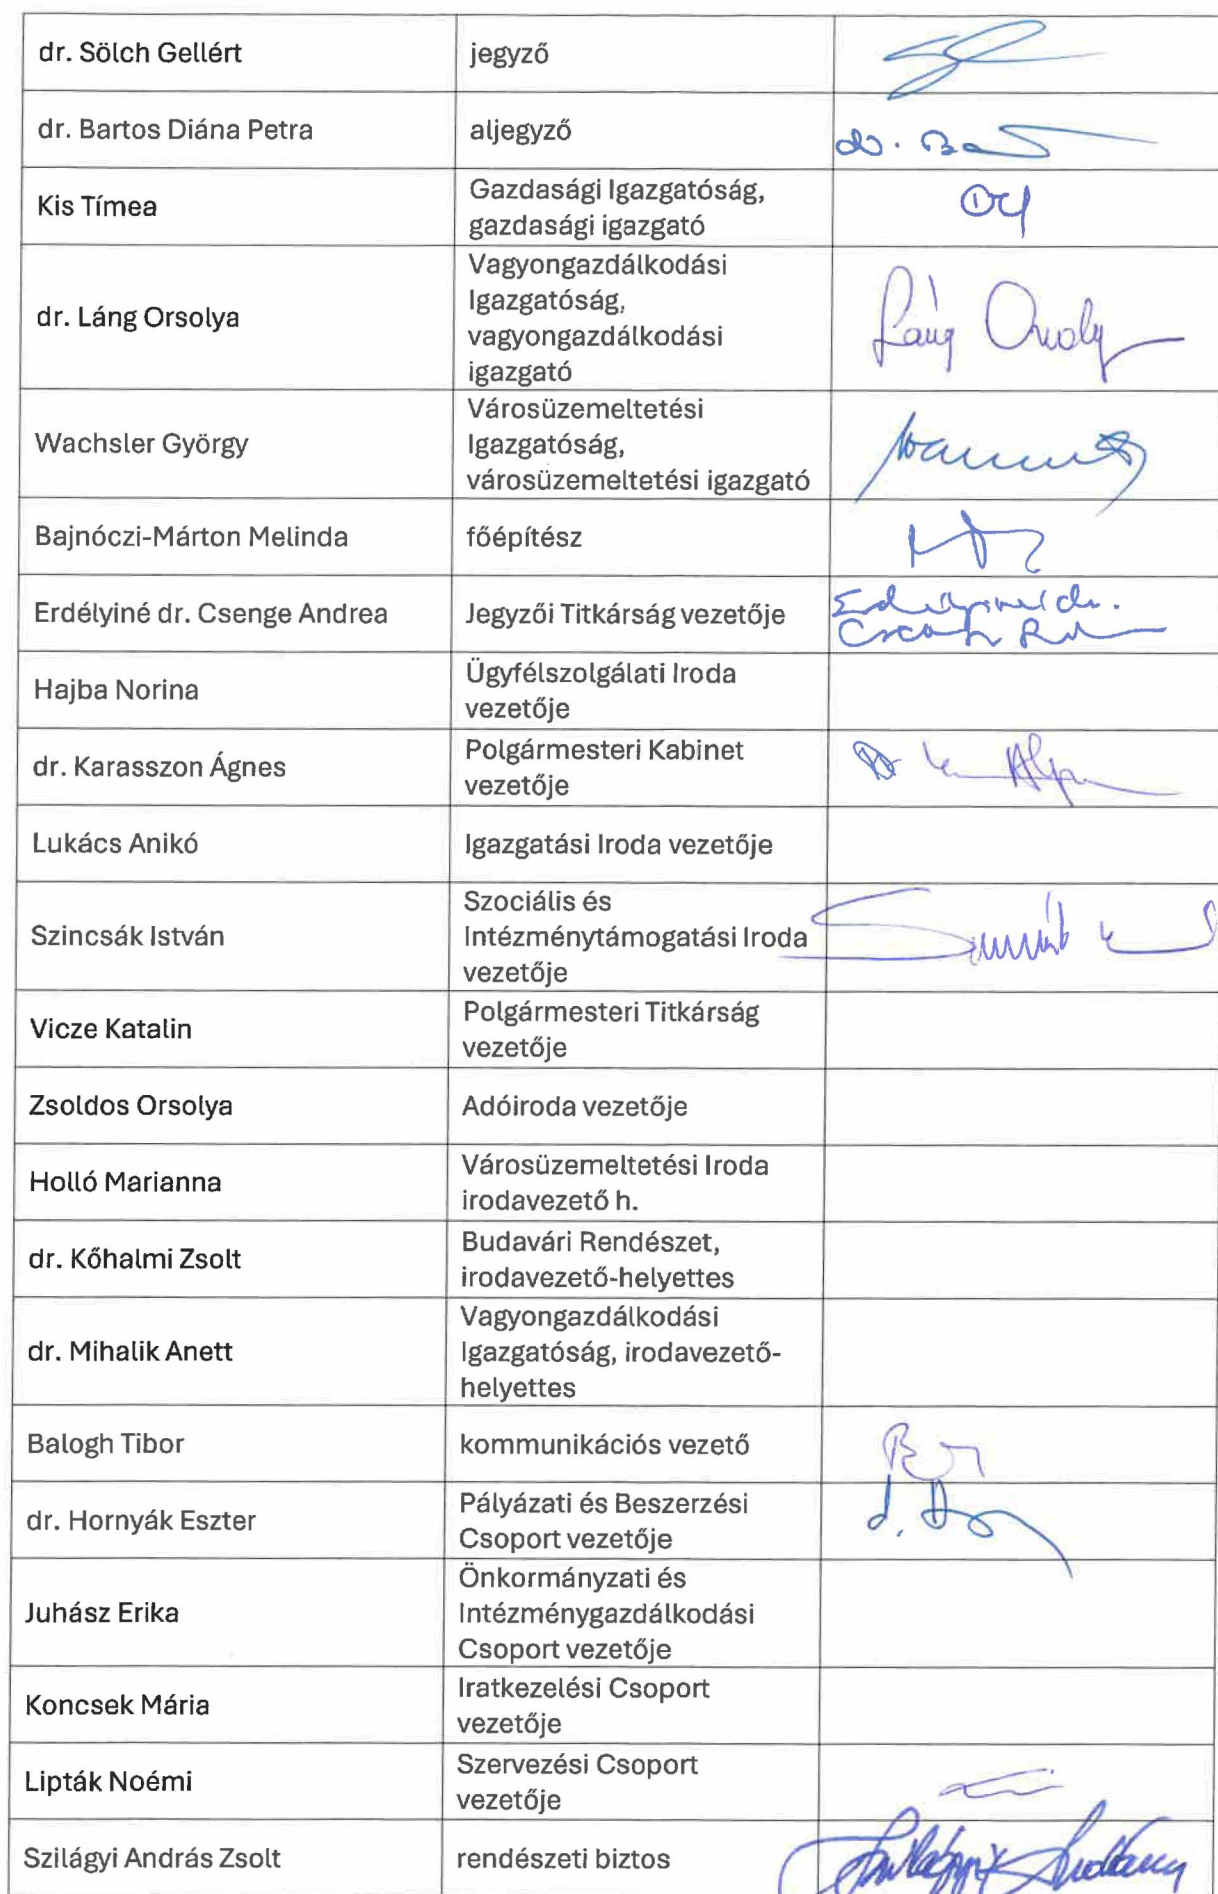 dr. Sölch Gellért
jegyző
dr. Bartos Diána Petra
aljegyző
dr. Ba
Kis Tímea
Gazdasági Igazgatóság,
gazdasági igazgató
dr. Láng Orsolya
Vagyongazdálkodási
Igazgatóság,
vagyongazdálkodási
igazgató
Láng Orsolya
Wachsler György
Városüzemeltetési
Igazgatóság,
városüzemeltetési igazgató
Bajnóczi-Márton Melinda
főépítész
Erdélyiné dr. Csenge Andrea
Jegyzői Titkárság vezetője
Erdélyiné dr.
Hajba Norina
Ügyfélszolgálati Iroda
vezetője
dr. Karasszon Ágnes
Polgármesteri Kabinet
vezetője
Lukács Anikó
Igazgatási Iroda vezetője
Szincsák István
Szociális és
Intézménytámogatási Iroda
vezetője
Vicze Katalin
Polgármesteri Titkárság
vezetője
Zsoldos Orsolya
Adóiroda vezetője
Holló Marianna
Városüzemeltetési Iroda
irodavezető h.
dr. Kőhalmi Zsolt
Budavári Rendészet,
irodavezető-helyettes
dr. Mihalik Anett
Vagyongazdálkodási
Igazgatóság, irodavezető-
helyettes
Balogh Tibor
kommunikációs vezető
dr. Hornyák Eszter
Pályázati és Beszerzési
Csoport vezetője
Juhász Erika
Önkormányzati és
Intézménygazdálkodási
Csoport vezetője
Koncsek Mária
Iratkezelési Csoport
vezetője
Lipták Noémi
Szervezési Csoport
vezetője
Szilágyi András Zsolt
rendészeti biztos